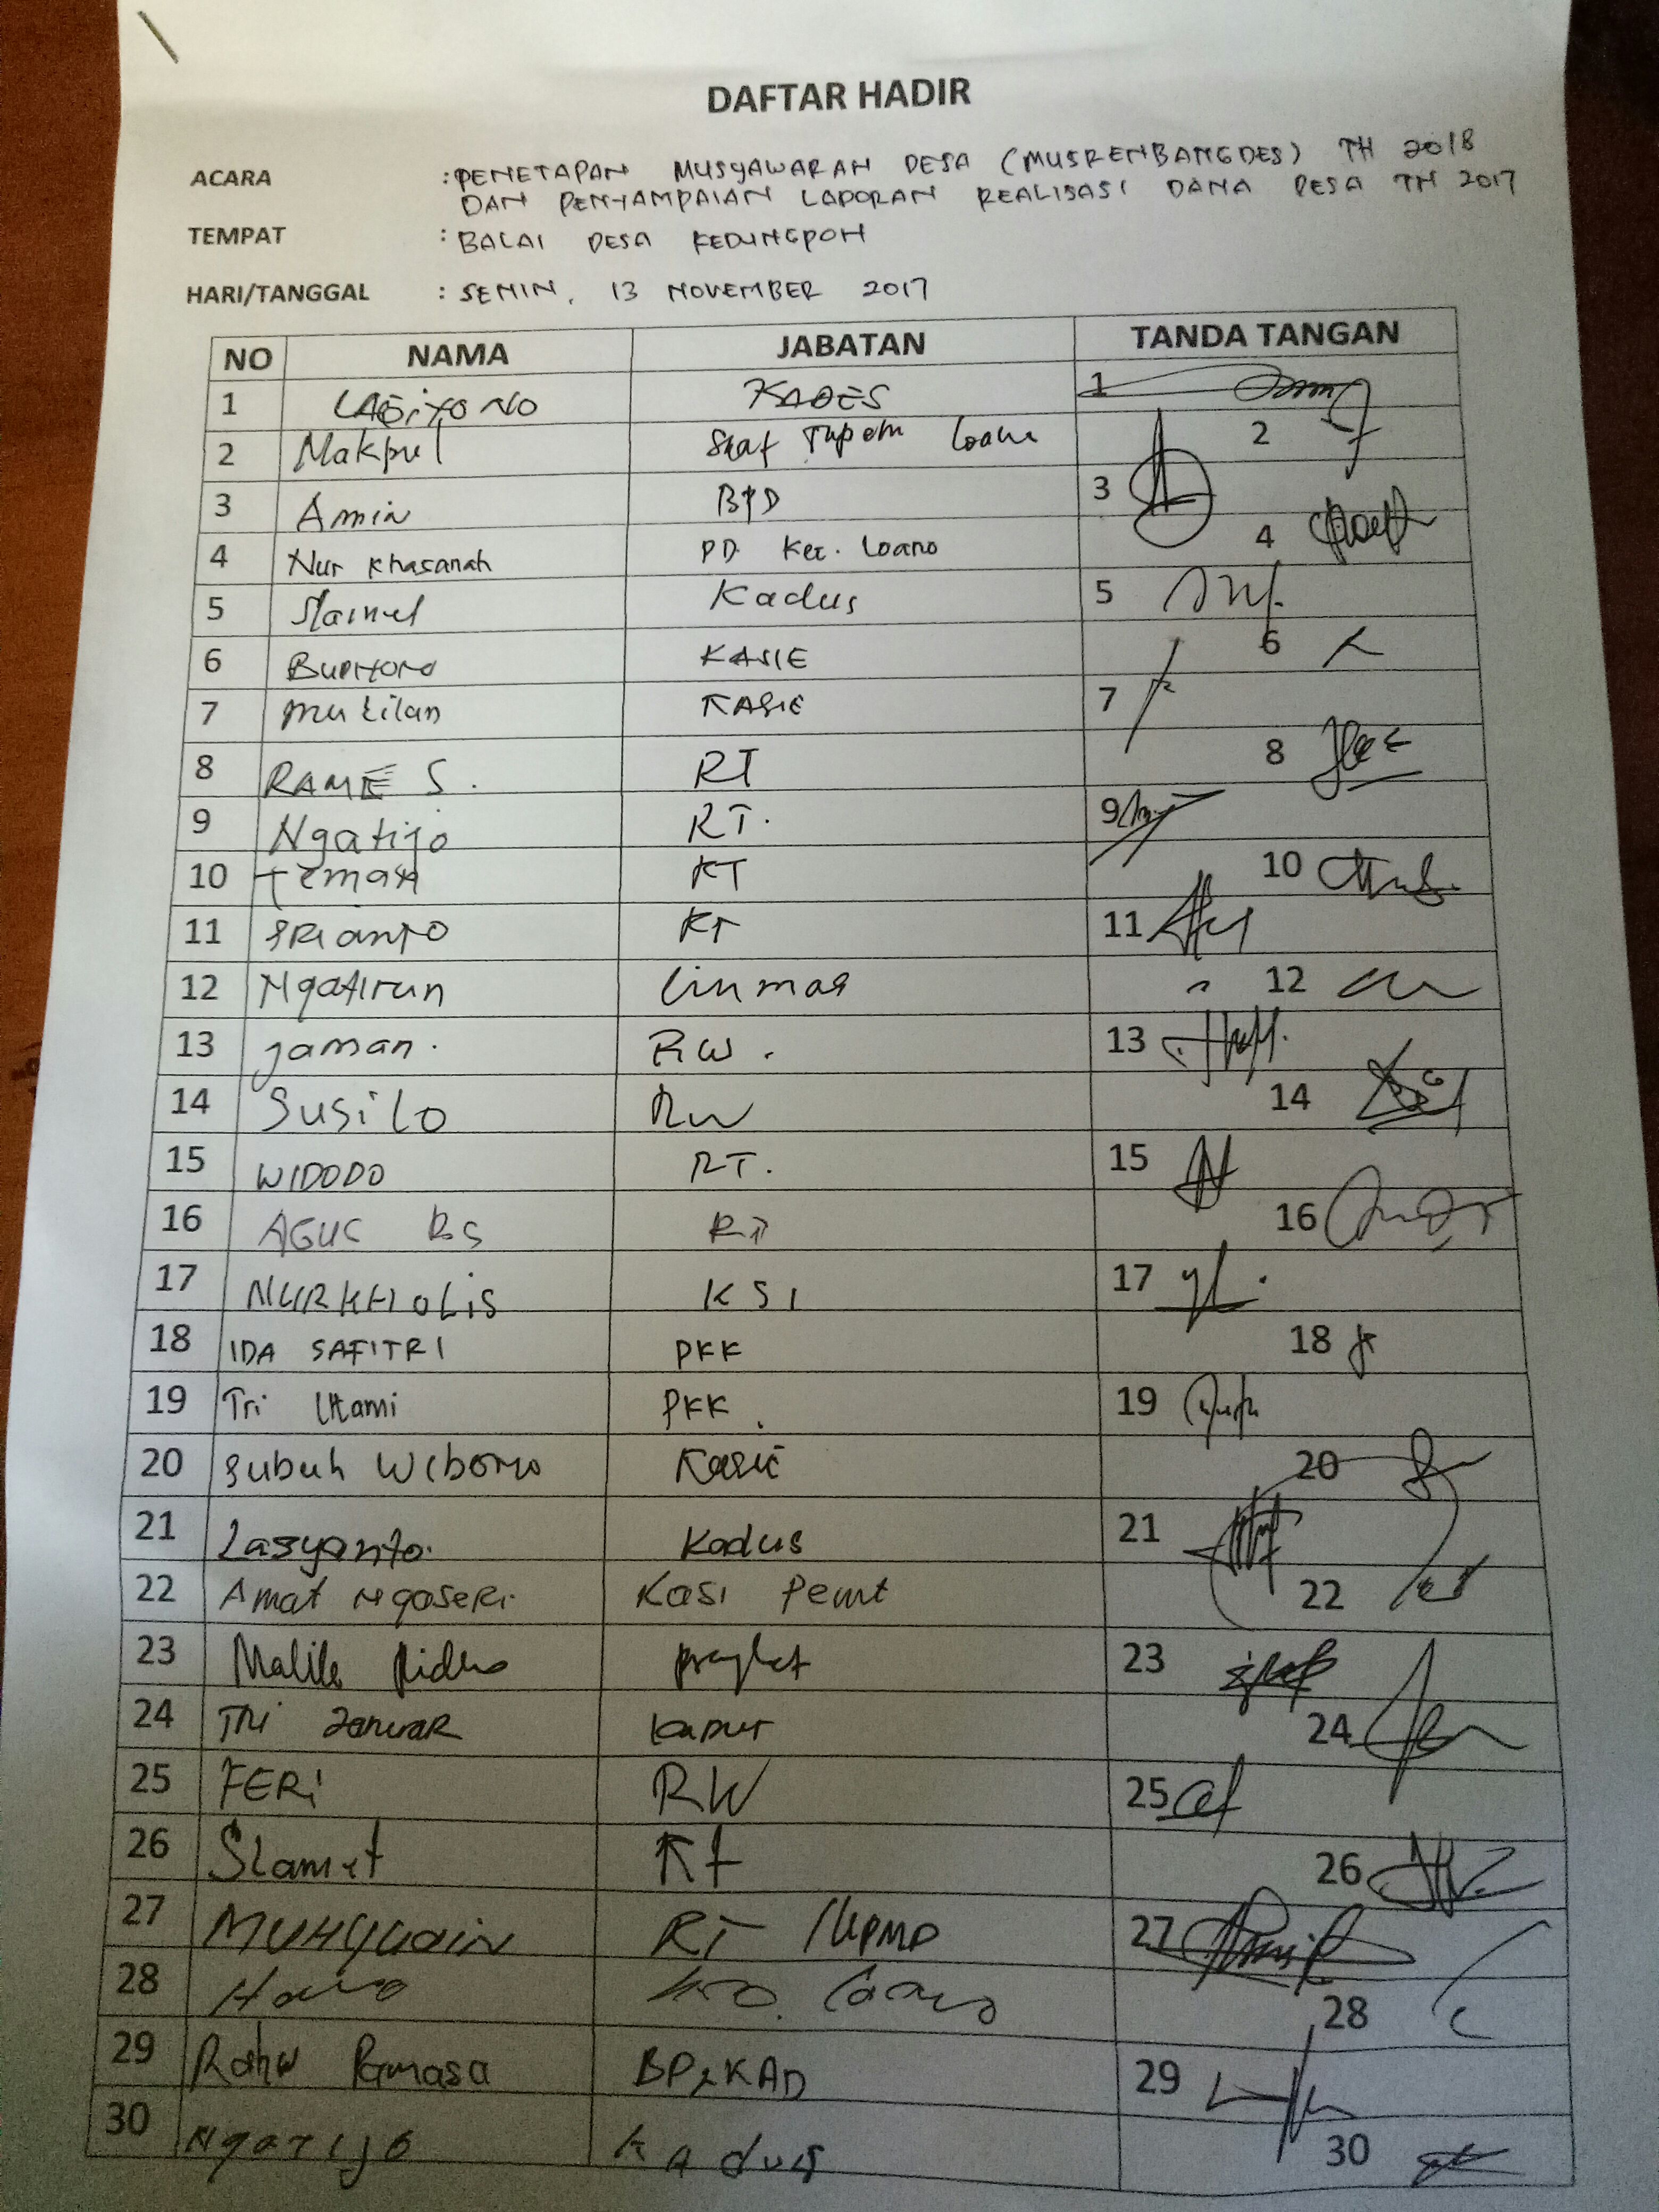 DAFTAR HADIR
ACARA : PENETAPAN MUSYAWARAH DESA (MUSRENBANGDES) TH 2018
DAN PENYAMPAIAN LAPORAN REALISASI DANA DESA TH 2017
TEMPAT : BALAI DESA KEDUNGPOH
HARI/TANGGAL : SENIN, 13 NOVEMBER 2017
NO NAMA JABATAN TANDA TANGAN
1 KADES 1
2 Makpul Staf 2
3 Amin BPD 3
4 Nur Khasanah PD. Kec. Loano 4
5 Slamet Kadus 5
6 KASIE 6
7 KASIE 7
8 RAME S. RT 8
9 Ngatijo RT. 9
10 Teman RT 10
11 SRianto RT 11
12 Ngatirun Linmas 12
13 Jaman. RW. 13
14 Susilo RW 14
15 WIDODO RT. 15
16 AGUS RT 16
17 NURKHOLIS KSI 17
18 IDA SAFITRI PKK 18
19 Tri Utami PKK. 19
20 Subuh Wibowo Kasie 20
21 Lasyanto. Kadus 21
22 Amat Ngaseri. Kasi Pemt 22
23 Malik 23
24 Tri Januar Kadus 24
25 FERi RW 25
26 Slamet RT 26
27 RT / KPMD 27
28 Loano 28
29 BP2KAD 29
30 Ngatijo Kadus 30